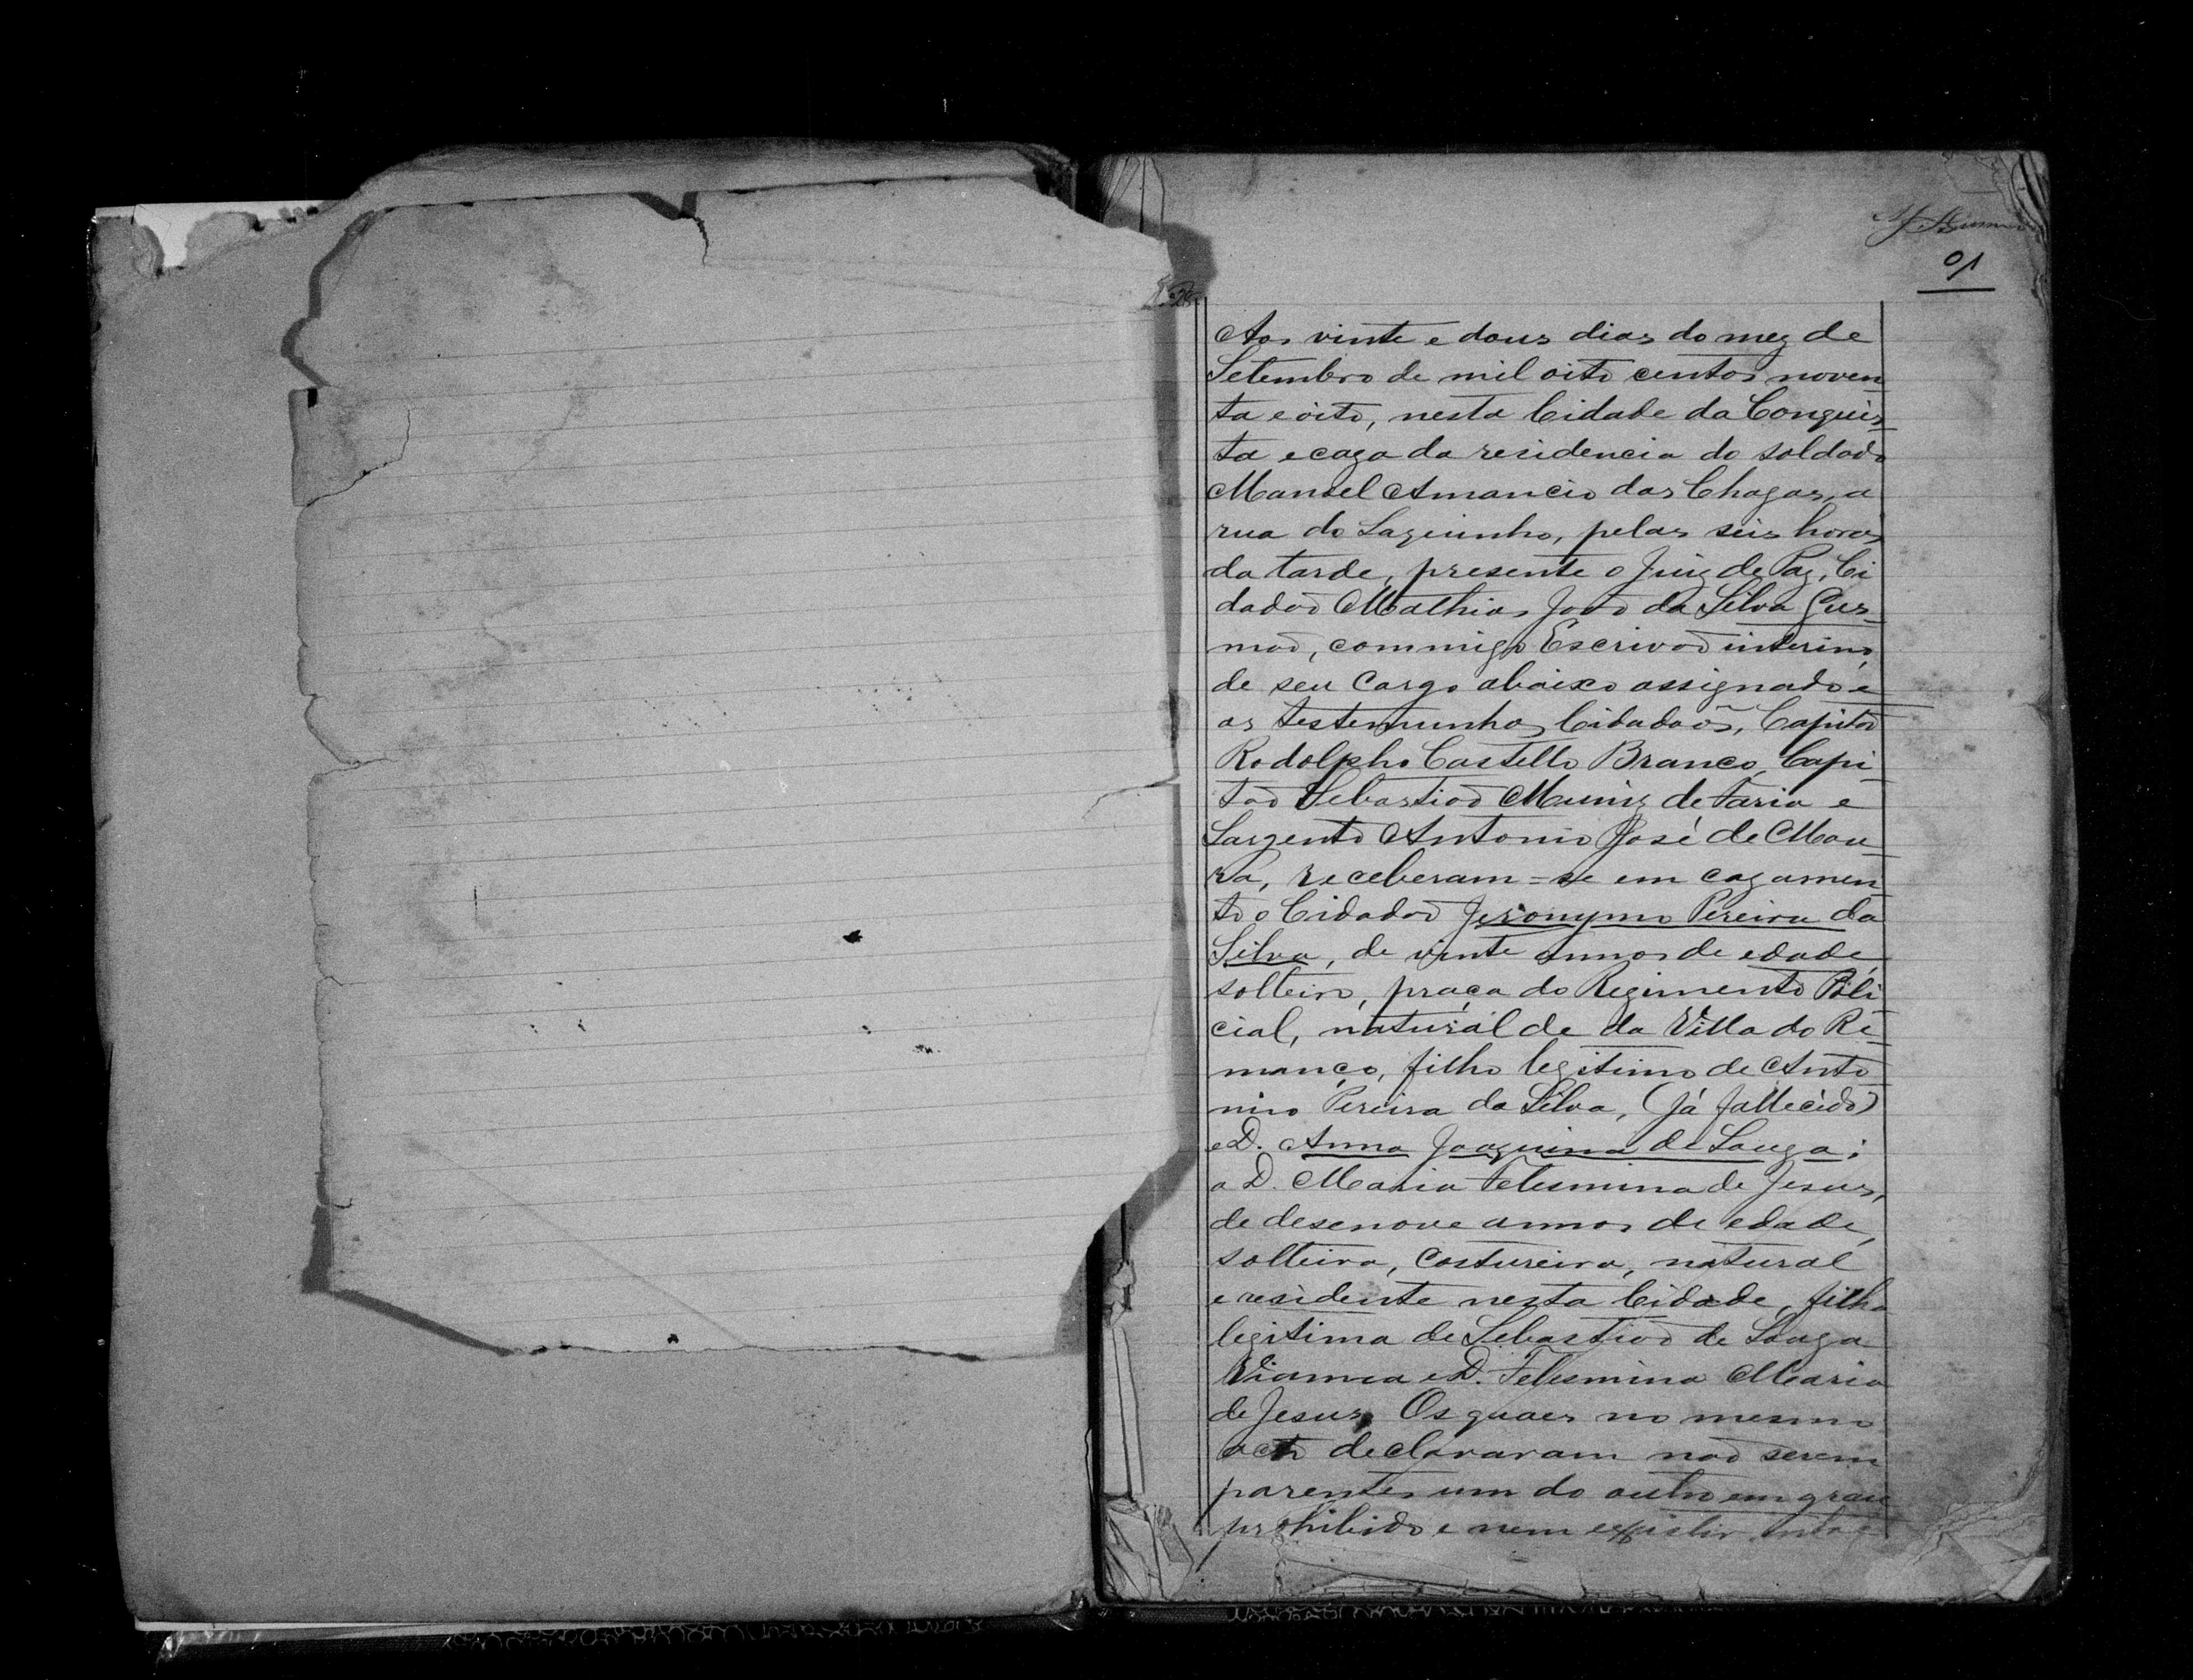 01
Aos vinte e dous dias do mez de
Setembro de mil oito centos noven
ta e oito, nesta Cidade da Conquis
ta e caza da residencia do soldado
Manoel Amancio das Chagas, a
rua do Lageiunho, pelas seis horas
da tarde, presente o Juiz de Paz, Ci
dadaõ Mathias João da Silva Gus
maõ, commigo Escrivaõ interino,
de seu Cargo abaixo assignado e
as testemunhas Cidadaõs, Capitaõ
Rodolpho Castello Branco, Capi
taõ Sebastiaõ Muniz de Faria e
Sargento Antonio José de Mou
ra, receberam=se em cazamen
to o Cidadaõ Jeronymo Pereira da
Silva, de vinte annos de edade
solteiro, praça do Regimento Poli
cial, natural de da Villa do Re
manço, filho legitimo de Anto
nio Pereira da Silva, (já fallecido)
e D. Anna Joaquina de Souza;
a D. Maria Telesmina de Jesus,
de desenove annos de edade,
solteira, costureira, natural
e residente nesta Cidade, filha
legitima de Sebastiaõ de Souza
Vianna e D. Telesmina Maria
de Jesus, Os quaes no mesmo
acto declararam naõ serem
parentes um do outro em grau
prohibido e nem existir